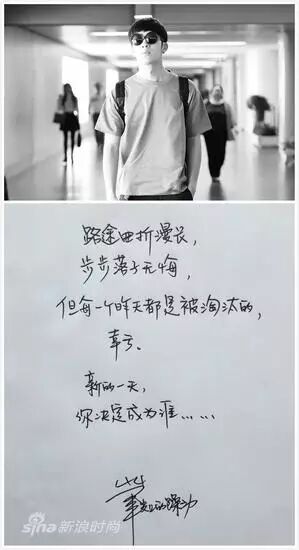 路途曲折漫长，
步步落子无悔，
但每一个昨天都是被淘汰的，
幸亏。
新的一天，
你决定成为谁……
躁动
sina新浪时尚